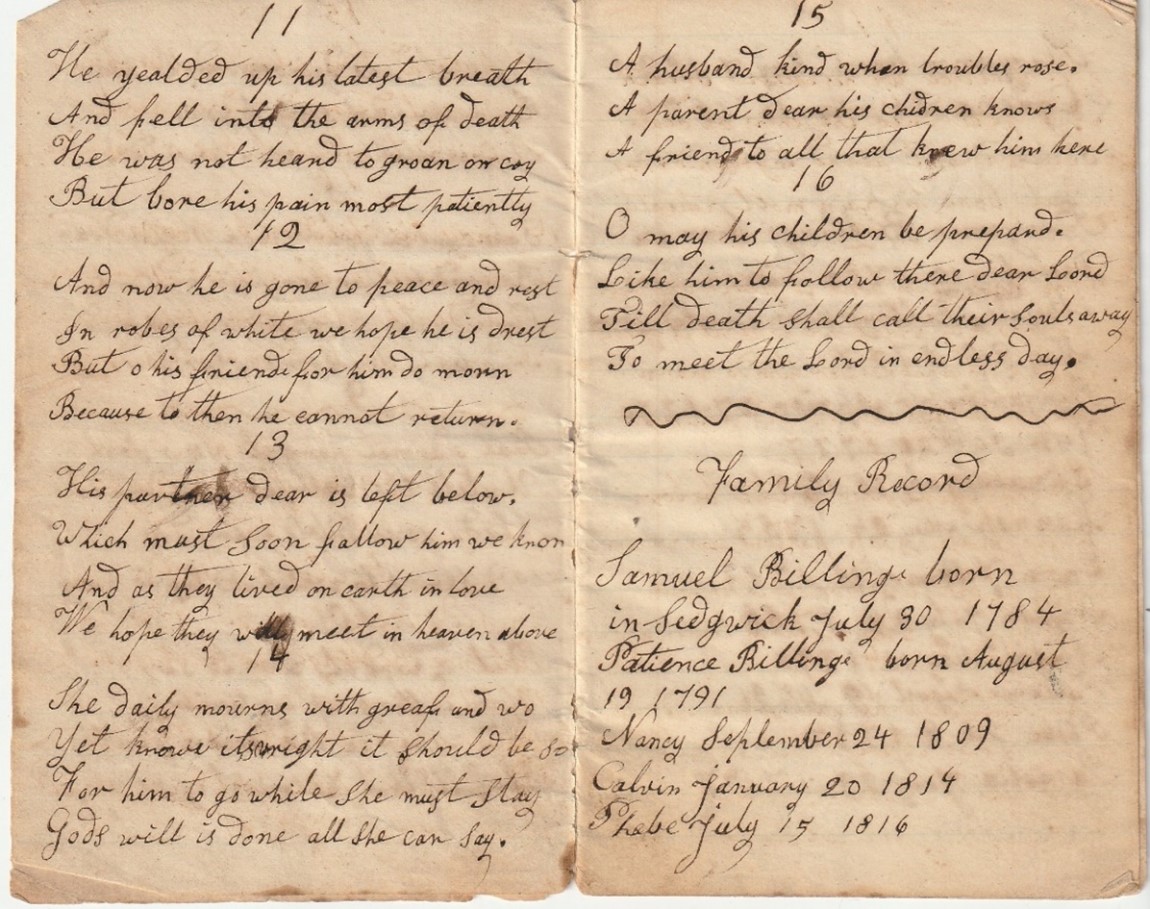 11
He yealded up his latest breath
And fell into the arms of death
He was not heard to groan or cry
But bore his pain most patiently
12
And now he is gone to peace and rest
In robes of white we hope he is drest
But o his friends for him do morn
Because to then he cannot return.
13
His partner dear is left below,
Which must soon fallow him we know
And as they lived on earth in love
We hope they will meet in heaven above
14
She daily mourns with greaf and wo
Yet knows its wright it should be so
For him to go while she must stay
Gods will is done all she can say.
15
A husband kind when troubles rose.
A parent dear his chidren knows
A friend to all that knew him here
16
O may his children be prepard.
Like him to follow there dear Lord
Till death shall call their souls away
To meet the Lord in endless day.
Family Record
Samuel Billings born
in Sedgwick July 30 1784
Patience Billings born August
19 1791
Nancy September 24 1809
Calvin January 20 1814
Phebe July 15 1816